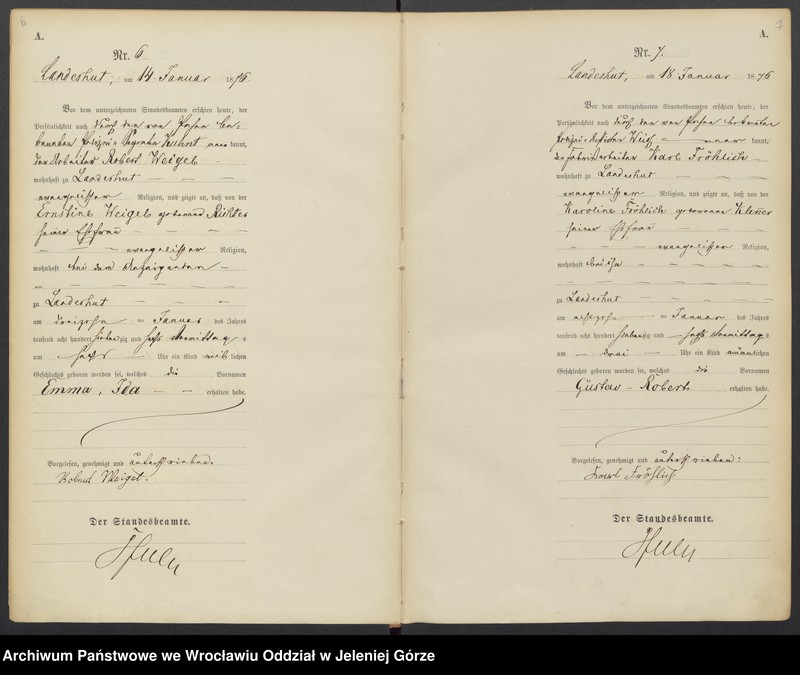 6
A.
Nr. 6
Landeshut, am 14 Januar 1876.
Vor dem unterzeichneten Standesbeamten erschien heute, der
Persönlichkeit nach durch den von Person be-
kannten Polizei-Sergeanten Kuhnt anerkannt,
der Arbeiter Robert Weigel
wohnhaft zu Landeshut
evangelischer Religion, und zeigte an, daß von der
Ernstine Weigel geborenen Richter
seiner Ehefrau
evangelischer Religion,
wohnhaft bei dem Anzeigenden
zu Landeshut
am dreizehn ten Januar des Jahres
tausend acht hundert siebenzig und sechs Vormittag s
um sechs Uhr ein Kind weib lichen
Geschlechts geboren worden sei, welches die Vornamen
Emma, Ida erhalten habe.
Vorgelesen, genehmigt und unterschrieben.
Robert Weigel.
Der Standesbeamte.
7
A.
Nr. 7.
Landeshut, am 18 Januar 1876
Vor dem unterzeichneten Standesbeamten erschien heute, der
Persönlichkeit nach durch den von Person bekannten
kannt,
der Fabrikarbeiter Karl Fröhlich
wohnhaft zu Landeshut
evangelischer Religion, und zeigte an, daß von der
Karoline Fröhlich geborenen
seiner Ehefrau
evangelischer Religion,
wohnhaft bei ihm
zu Landeshut
am achtzehn ten Januar des Jahres
tausend acht hundert siebenzig und sechs Vormittag s
um drei Uhr ein Kind männlichen
Geschlechts geboren worden sei, welches die Vornamen
Gustav - Robert erhalten habe.
Vorgelesen, genehmigt und unterschrieben:
Karl Fröhlich
Der Standesbeamte.
Archiwum Państwowe we Wrocławiu Oddział w Jeleniej Górze